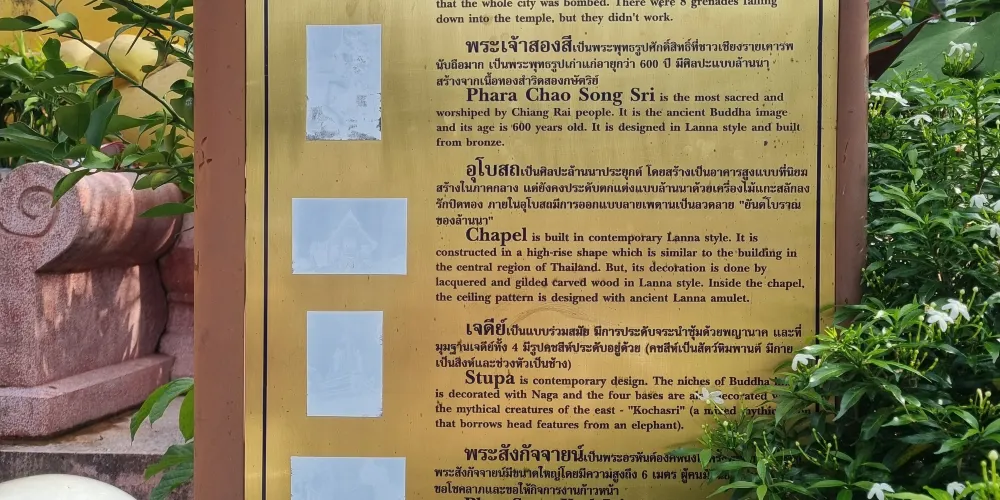 that the whole city was bombed. There were 8 grenades falling
down into the temple, but they didn't work.
พระเจ้าสองสีเป็นพระพุทธรูปศักดิ์สิทธิ์ที่ชาวเชียงรายเคารพ
นับถือมาก เป็นพระพุทธรูปเก่าแก่อายุกว่า 600 ปี มีศิลปะแบบล้านนา
สร้างจากเนื้อทองสำริดสองกษัตริย์
Phara Chao Song Sri is the most sacred and
worshiped by Chiang Rai people. It is the ancient Buddha image
and its age is 600 years old. It is designed in Lanna style and built
from bronze.
อุโบสถเป็นศิลปะล้านนาประยุกต์ โดยสร้างเป็นอาคารสูงแบบที่นิยม
สร้างในภาคกลาง แต่ยังคงประดับตกแต่งแบบล้านนาด้วยเครื่องไม้แกะสลักลง
รักปิดทอง ภายในอุโบสถมีการออกแบบลายเพดานเป็นลวดลาย "ยันต์โบราณ
ของล้านนา"
Chapel is built in contemporary Lanna style. It is
constructed in a high-rise shape which is similar to the building in
the central region of Thailand. But, its decoration is done by
lacquered and gilded carved wood in Lanna style. Inside the chapel,
the ceiling pattern is designed with ancient Lanna amulet.
เจดีย์เป็นแบบร่วมสมัย มีการประดับจระนำซุ้มด้วยพญานาค และที่
มุมฐานเจดีย์ทั้ง 4 มีรูปคชสีห์ประดับอยู่ด้วย (คชสีห์เป็นสัตว์หิมพานต์ มีกาย
เป็นสิงห์และช่วงหัวเป็นช้าง)
Stupa is contemporary design. The niches of Buddha
is decorated with Naga and the four bases are also decorated
the mythical creatures of the east - "Kochasri" (a mixed
that borrows head features from an elephant).
พระสังกัจจายน์เป็นพระอรหันต์องค์หนึ่ง
พระสังกัจจายน์มีขนาดใหญ่โดยมีความสูงถึง 6 เมตร
ขอโชคลาภและขอให้กิจการงานก้าวหน้า